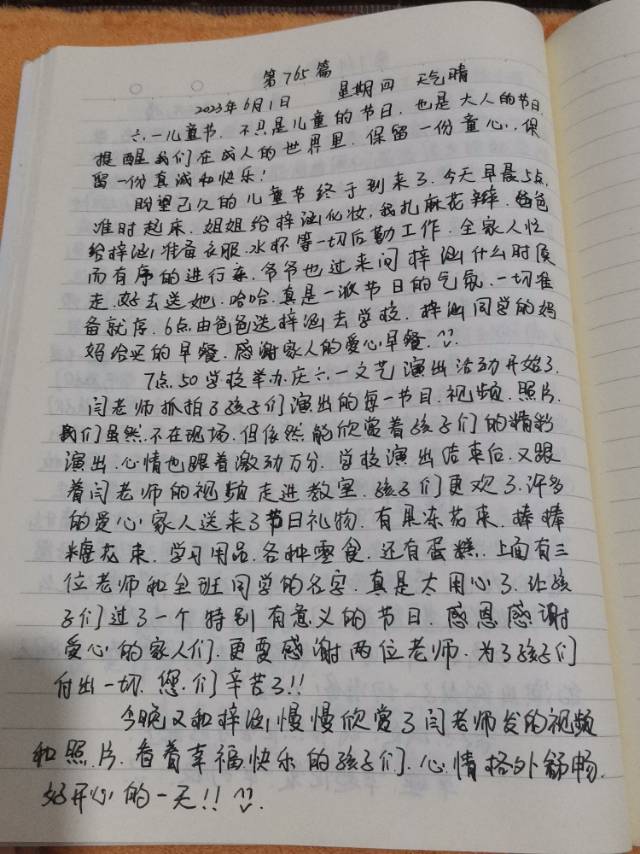 第765篇
2023年6月1日 星期四 天气晴
六一儿童节,不只是儿童的节日,也是大人的节日,
提醒我们在成人的世界里,保留一份童心,保
留一份真诚和快乐!
盼望已久的儿童节终于到来了,今天早晨5点,
准时起床,姐姐给梓涵化妆,我扎麻花辫,爸爸
给梓涵准备衣服,水杯等一切后勤工作,全家人忙
而有序的进行来,爷爷也过来问梓涵什么时候
走,好去送她,哈哈,真是一派节日的气氛,一切准
备就序,6点由爸爸送梓涵去学校,梓涵同学的妈
妈给买的早餐,感谢家人的爱心早餐,
7点,50学校举办庆六.一文艺演出活动开始了,
闫老师抓拍了孩子们演出的每一节目,视频,照片,
我们虽然,不在现场,但依然能欣赏着孩子们的精彩
演出,心情也跟着激动万分,学校演出结束后,又跟
着闫老师的视频走进教室,孩子们更欢了,许多
的爱心家人送来了节日礼物,有果冻花束,棒棒
糖花束,学习用品,各种零食,还有蛋糕,上面有三
位老师和全班同学的名字,真是太用心了,让孩
子们过了一个特别有意义的节日,感恩感谢
爱心的家人们,更要感谢两位老师,为了孩子们
付出一切,您们辛苦了!!
今晚又和梓涵慢慢欣赏了闫老师发的视频
和照片,看着幸福快乐的孩子们,心情格外舒畅,
好开心的一天!!